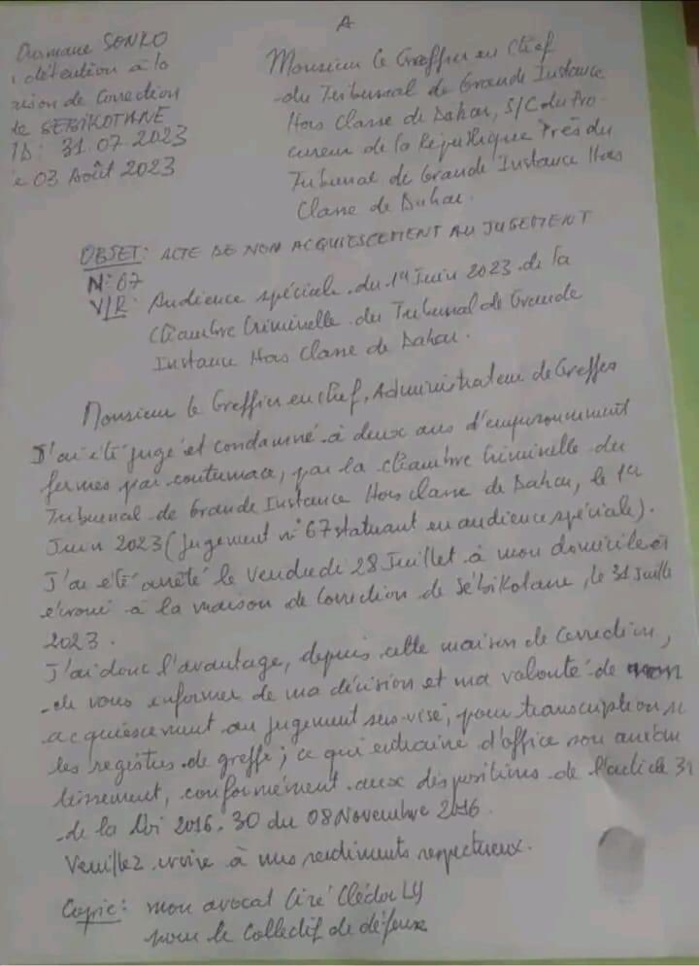 A
Ousmane SONKO
détention à la
maison de Correction
de SEBIKOTANE
31.07.2023
03 Août 2023
Monsieur le Greffier en Chef
du Tribunal de Grande Instance
Hors Classe de Dakar, S/C du Pro-
cureur de la République Près du
Tribunal de Grande Instance Hors
Classe de Dakar.
OBJET: ACTE DE NON ACQUIESCEMENT AU JUGEMENT
N°67
V/R: Audience spéciale du 1er Juin 2023 de la
Chambre Criminelle du Tribunal de Grande
Instance Hors Classe de Dakar.
Monsieur le Greffier en Chef, Administrateur de Greffes
J'ai été jugé et condamné à deux ans d'emprisonnement
fermes par contumace, par la chambre Criminelle du
Tribunal de Grande Instance Hors classe de Dakar, le 1er
Juin 2023 (jugement n°67 statuant en audience spéciale).
J'ai été arrêté le Vendredi 28 Juillet à mon domicile et
écroué à la maison de Correction de Sébikotane, le 31 Juillet
2023.
J'ai donc l'avantage, depuis cette maison de Correction,
de vous informer de ma décision et ma volonté de non
acquiescement au jugement sus-visé, pour transcription
les registres de greffe; ce qui entraine d'office son anéan
tissement, conformément aux dispositions de l'article 31
de la Loi 2016.30 du 08 Novembre 2016.
Veuillez croire à mes sentiments respectueux.
Copie: mon avocat Ciré Clédor LY
pour le Collectif de défense